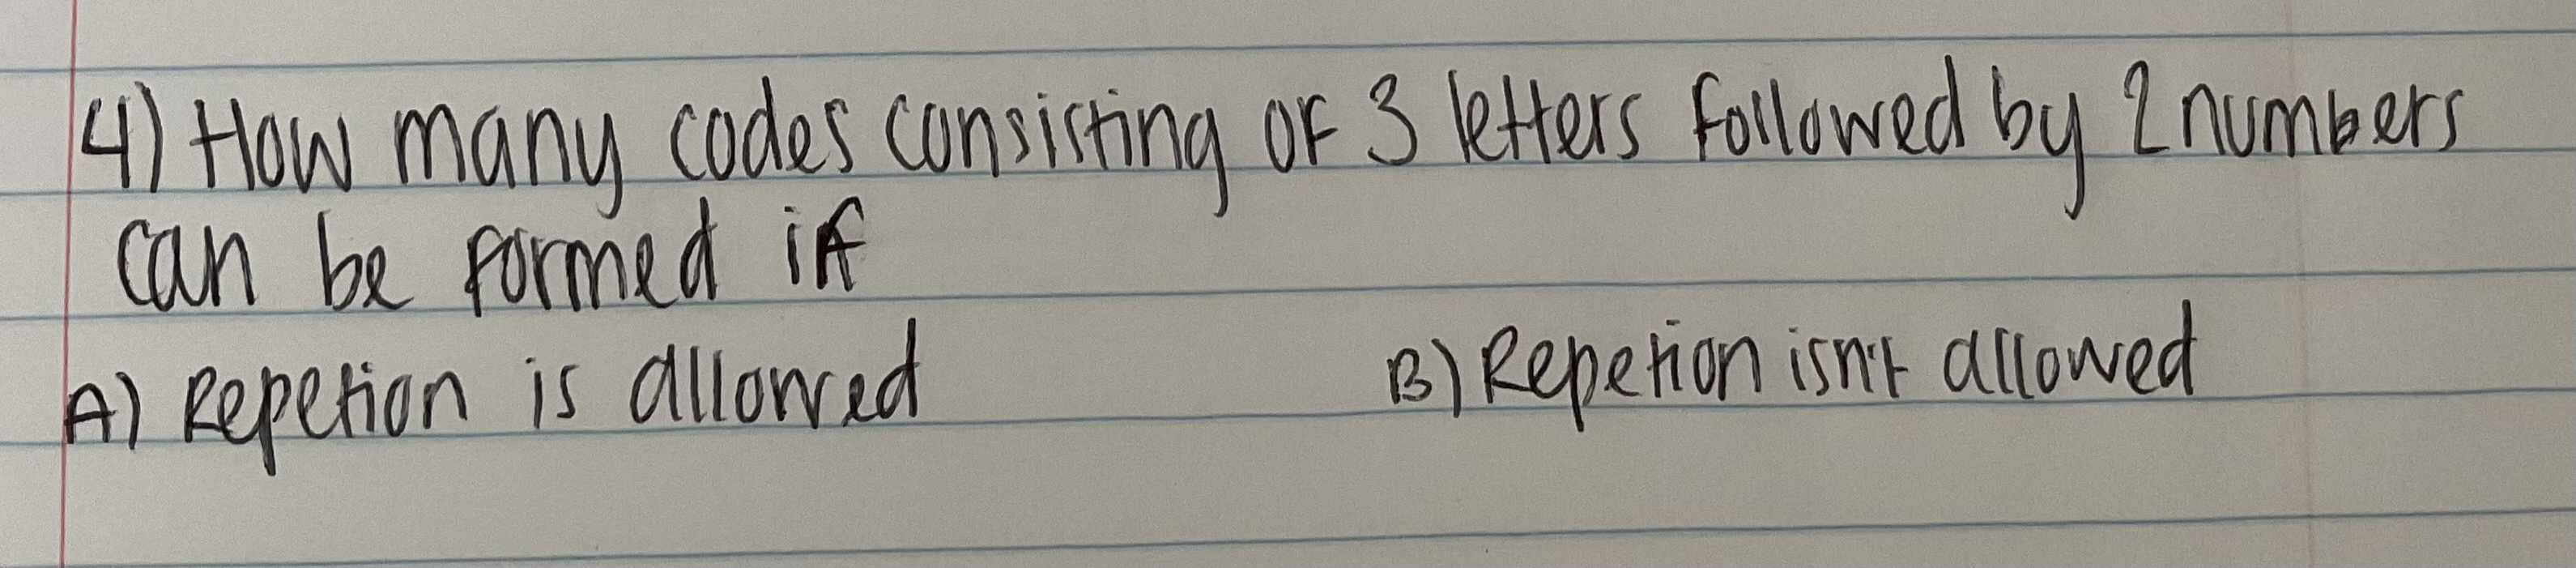 4) How many codes consisting of 3 letters followed by 2 numbers
can be formed if
A) Repetion is allowed B) Repetion isn't allowed